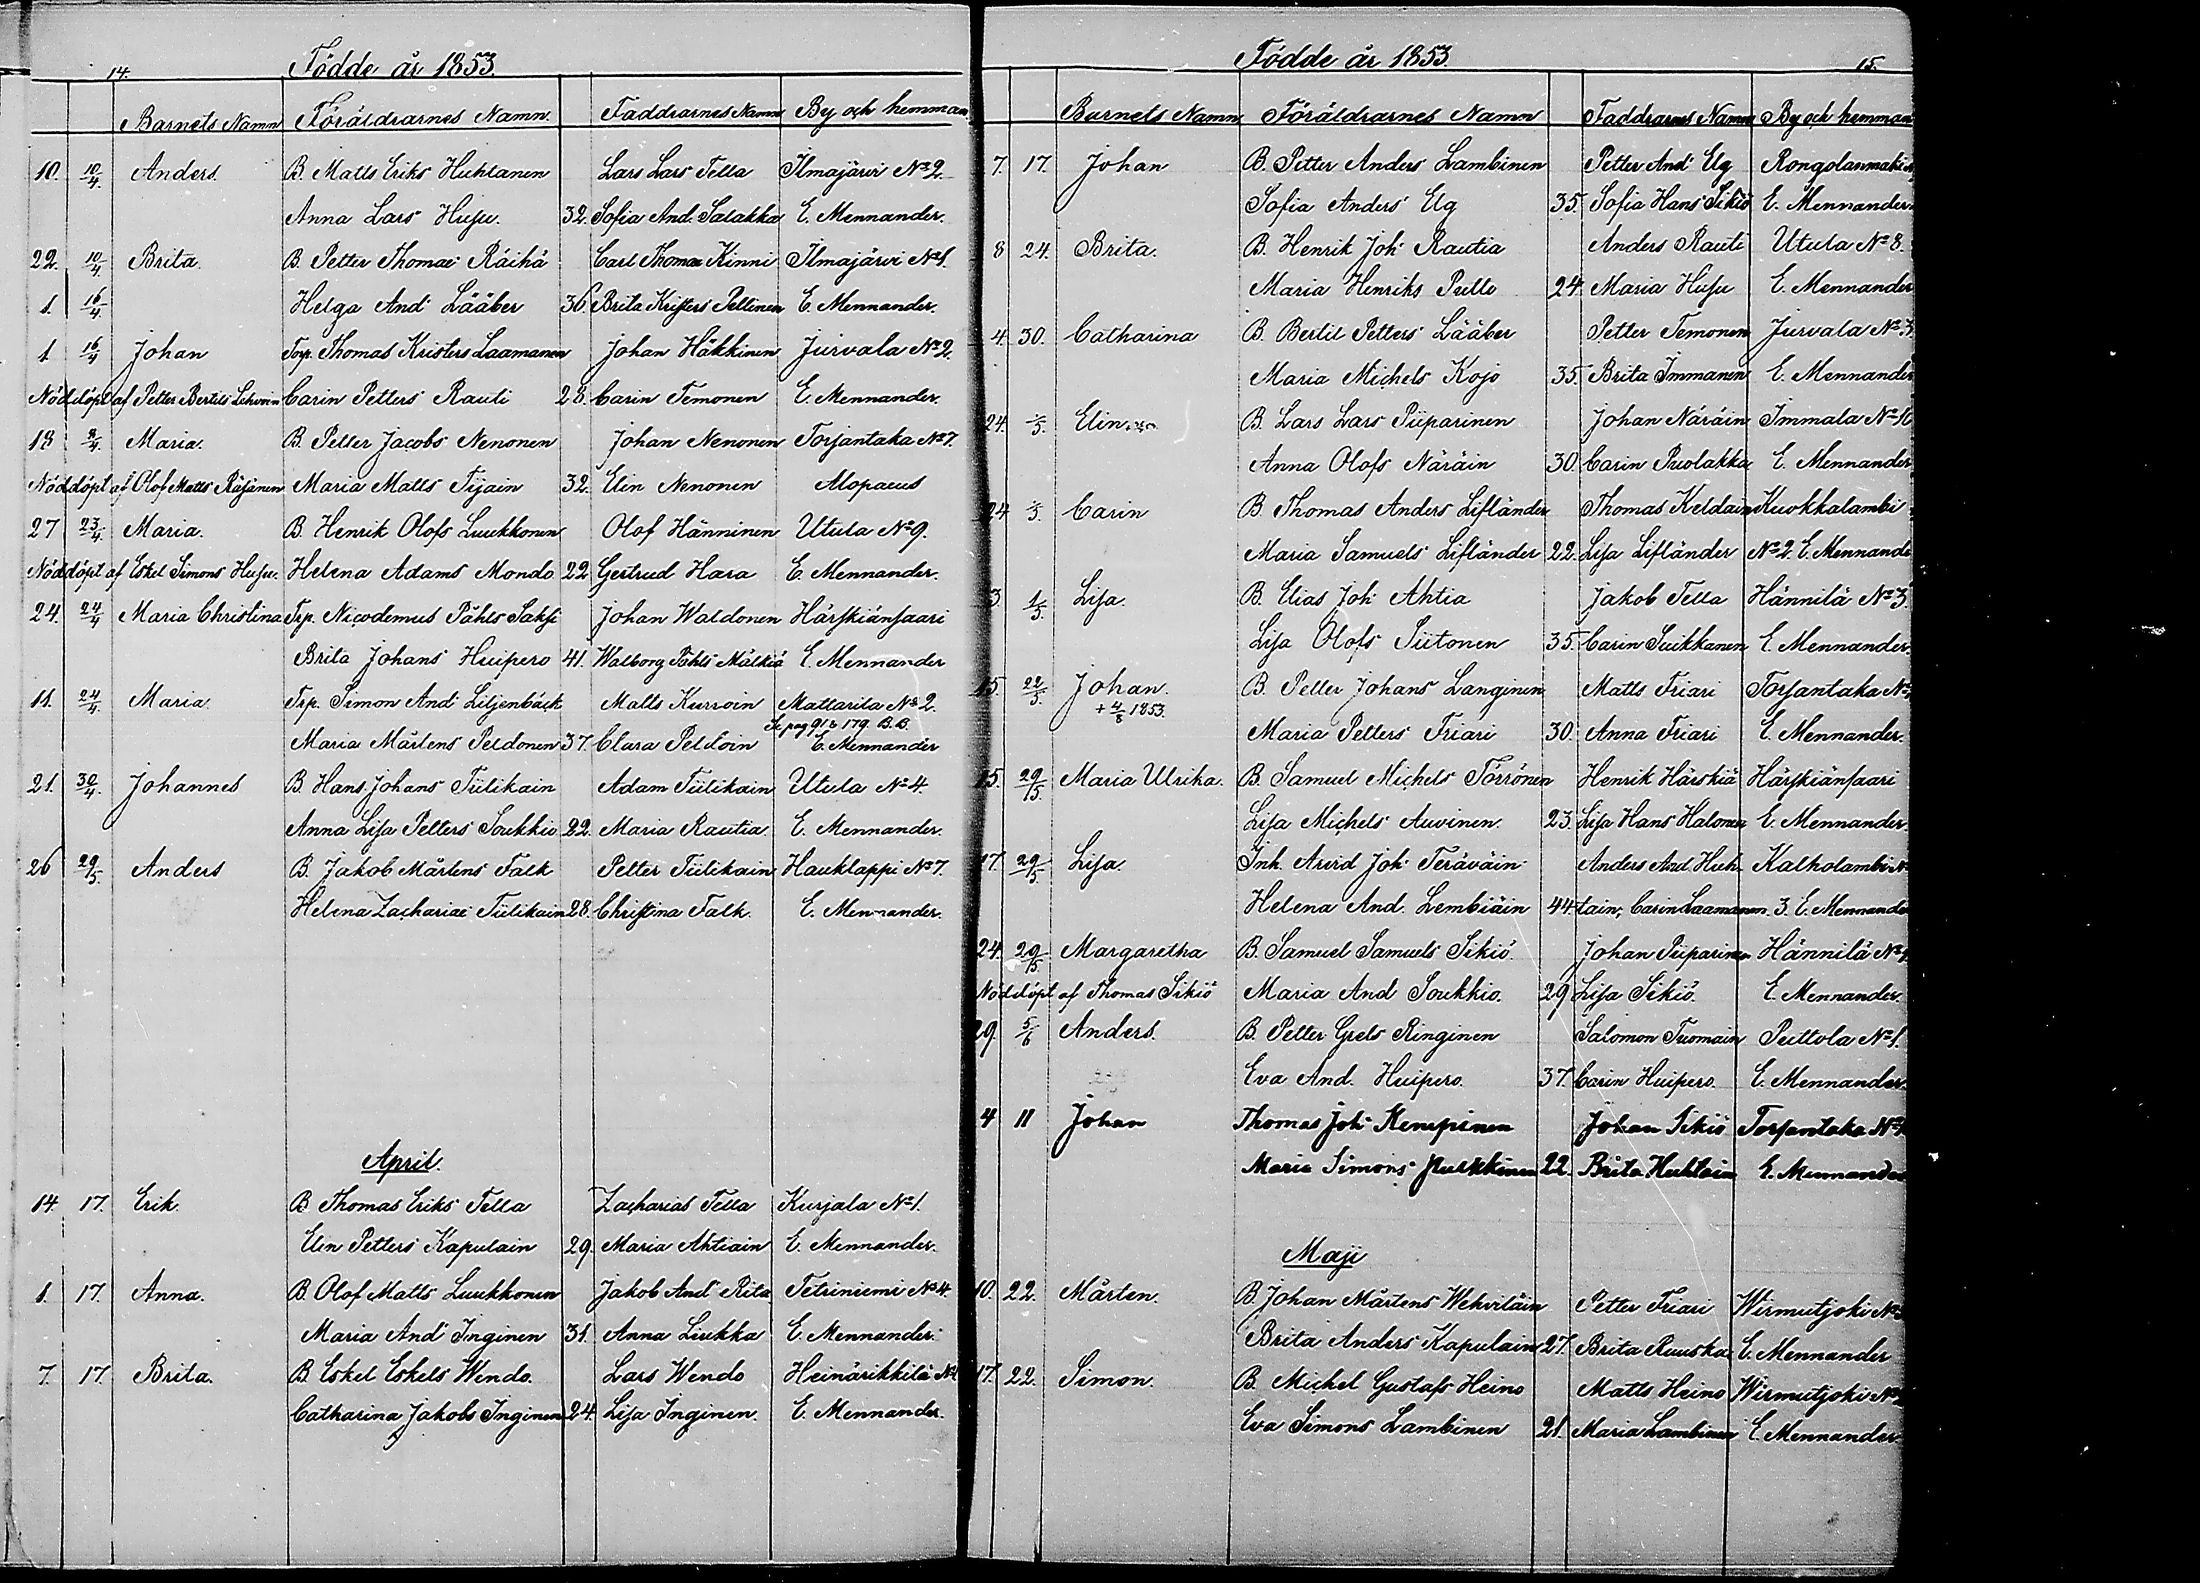 14.
Födde år 1853.
Barnets Namn Föräldrarnes Namn. Faddrarnes Namn By och hemman
10. 10/4. Anders. B. Matts Eriks Huhtanen Lars Lars Tella Ilmajärvi No 2.
Anna Lars Husu. 32. Sofia And. Salakka E. Mennander.
22. 10/4 Brita. B. Petter Thomæ Räihä Carl Thomæ Kinni Ilmajärvi No 1.
1. 16/4 Helga And Lääber 36. Brita Kristers Peltinen E. Mennander.
1. 16/4 Johan Torp. Thomas Kristers Laamanen Johan Häkkinen Jurvala No 2.
Nöddöpt af Petter Bertils Carin Petters Rauti 28. Carin Temonen E. Mennander.
18 8/4. Maria. B. Petter Jacobs Nenonen Johan Nenonen Torsantaka No 7.
Nöddöpt af Olof Matts Räsänen Maria Matts Tijain 32. Elin Nenonen Alopaeus
27 23/4. Maria. B. Henrik Olofs Luukkonen Olof Hänninen Utula No 9.
Nöddöpt af Eskel Simons Husu. Helena Adams Mondo 22 Gertrud Hara E. Mennander.
24. 24/4 Maria Christina Trp. Nicodemus Påhls Saksi Johan Waldonen Härskiänsaari
Brita Johans Huipero 41. Walborg Påhls Mälkiä E. Mennander
11. 24/4. Maria. Trp. Simon And Liljenbäck Matts Kurroin Mattarila No 2.
Se pag 91 & 179 B.B.
Maria Mårtens Peldonen 37. Clara Peldoin E. Mennander
21. 30/4. Johannes B. Hans Johans Tiilikain Adam Tiilikain Utula No 4.
Anna Lisa Petters Soukkio 22. Maria Rautia. E. Mennander.
26 29/5. Anders B. Jakob Mårtens Falk Petter Tiilikain Hauklappi No 7.
Helena Zachariæ Tiilikain 28. Christina Falk. E. Mennander.
April.
14. 17. Erik. B Thomas Eriks Tella Zacharias Tella Kurjala No 1.
Elin Petters Kapulain 29. Maria Ahtiain E. Mennander.
1. 17. Anna. B. Olof Matts Luukkonen Jakob And Rita Tetriniemi No 4.
Maria And Inginen 31. Anna Liukka E. Mennander.
7. 17 Brita. B. Eskel Eskels Wendo. Lars Wendo Heinärikkilä No
Catharina Jakobs Inginen 24. Lisa Inginen. E. Mennander.
Födde år 1853.
15.
Barnets Namn Föräldrarnes Namn Faddrarnes Namn By och hemman
7. 17. Johan B. Petter Anders Lambinen Petter And Ug Rongolanmäki
Sofia Anders Ug 35. Sofia Hans Sikiö E. Mennander.
8 24. Brita. B. Henrik Joh Rautia Anders Rauti Utula No 8.
Maria Henriks Pulle 24. Maria Husu E. Mennander
4. 30. Catharina B. Bertil Petters Lääber Petter Temonen Jurvala No 3
Maria Michels Kojo 35. Brita Immanen E. Mennander
24. /5. Elin B. Lars Lars Piiparinen Johan Näräin Immala No
Anna Olofs Näräin 30 Carin Puolakka E. Mennander
24 /5. Carin B Thomas Anders Lifländer Thomas Keldain Kuokkalambi
Maria Samuels Lifländer 22. Lisa Lifländer No 2. E. Mennander
3. 1/5. Lisa. B. Elias Joh Ahtia Jakob Tella Hännilä No 3.
Lisa Olofs Piitonen 35. Carin Suikkanen E. Mennander.
15. 22/5. Johan. B. Petter Johans Langinen Matts Friari Torsantaka No
+ 4/8 1853.
Maria Petters Friari 30. Anna Friari E. Mennander.
15. 29/5. Maria Ulrika. B. Samuel Michels Törrönen Henrik Härskiä Härskiänsaari
Lisa Michels Auvinen 23. Lisa Hans Halonen E. Mennander.
17. 29/5. Lisa. Inh. Arvid Joh Teräväin Anders And. Huh- Kalholambi No
Helena And. Lembiäin 44. tain, Carin Laamanen. 3. E. Mennander
24. 29/5. Margaretha B. Samuel Samuels Sikiö. Johan Piiparinen Hännilä No
Nöddöpt af Thomas Sikiö Maria And Soukkio. 29 Lisa Sikiö. E. Mennander.
29. 5/6 Anders. B. Petter Grels Ringinen Salomon Tuomain Puttola No 1.
Eva And. Huipero. 37. Carin Huipero. E. Mennander.
4 11 Johan Thomas Joh Kemppinen Johan Sikiö Torsantaka No
Maria Simons Purkkinen 22. Brita Huhtain E. Mennander
Maji
10. 22. Mårten. B. Johan Mårtens Wehviläin Petter Friari Wirmutjoki No
Brita Anders Kapulain 27. Brita Ruuska E. Mennander
17. 22. Simon. B. Michel Gustafs Heino Matts Heino Wirmutjoki No
Eva Simons Lambinen 21. Maria Lambinen E. Mennander